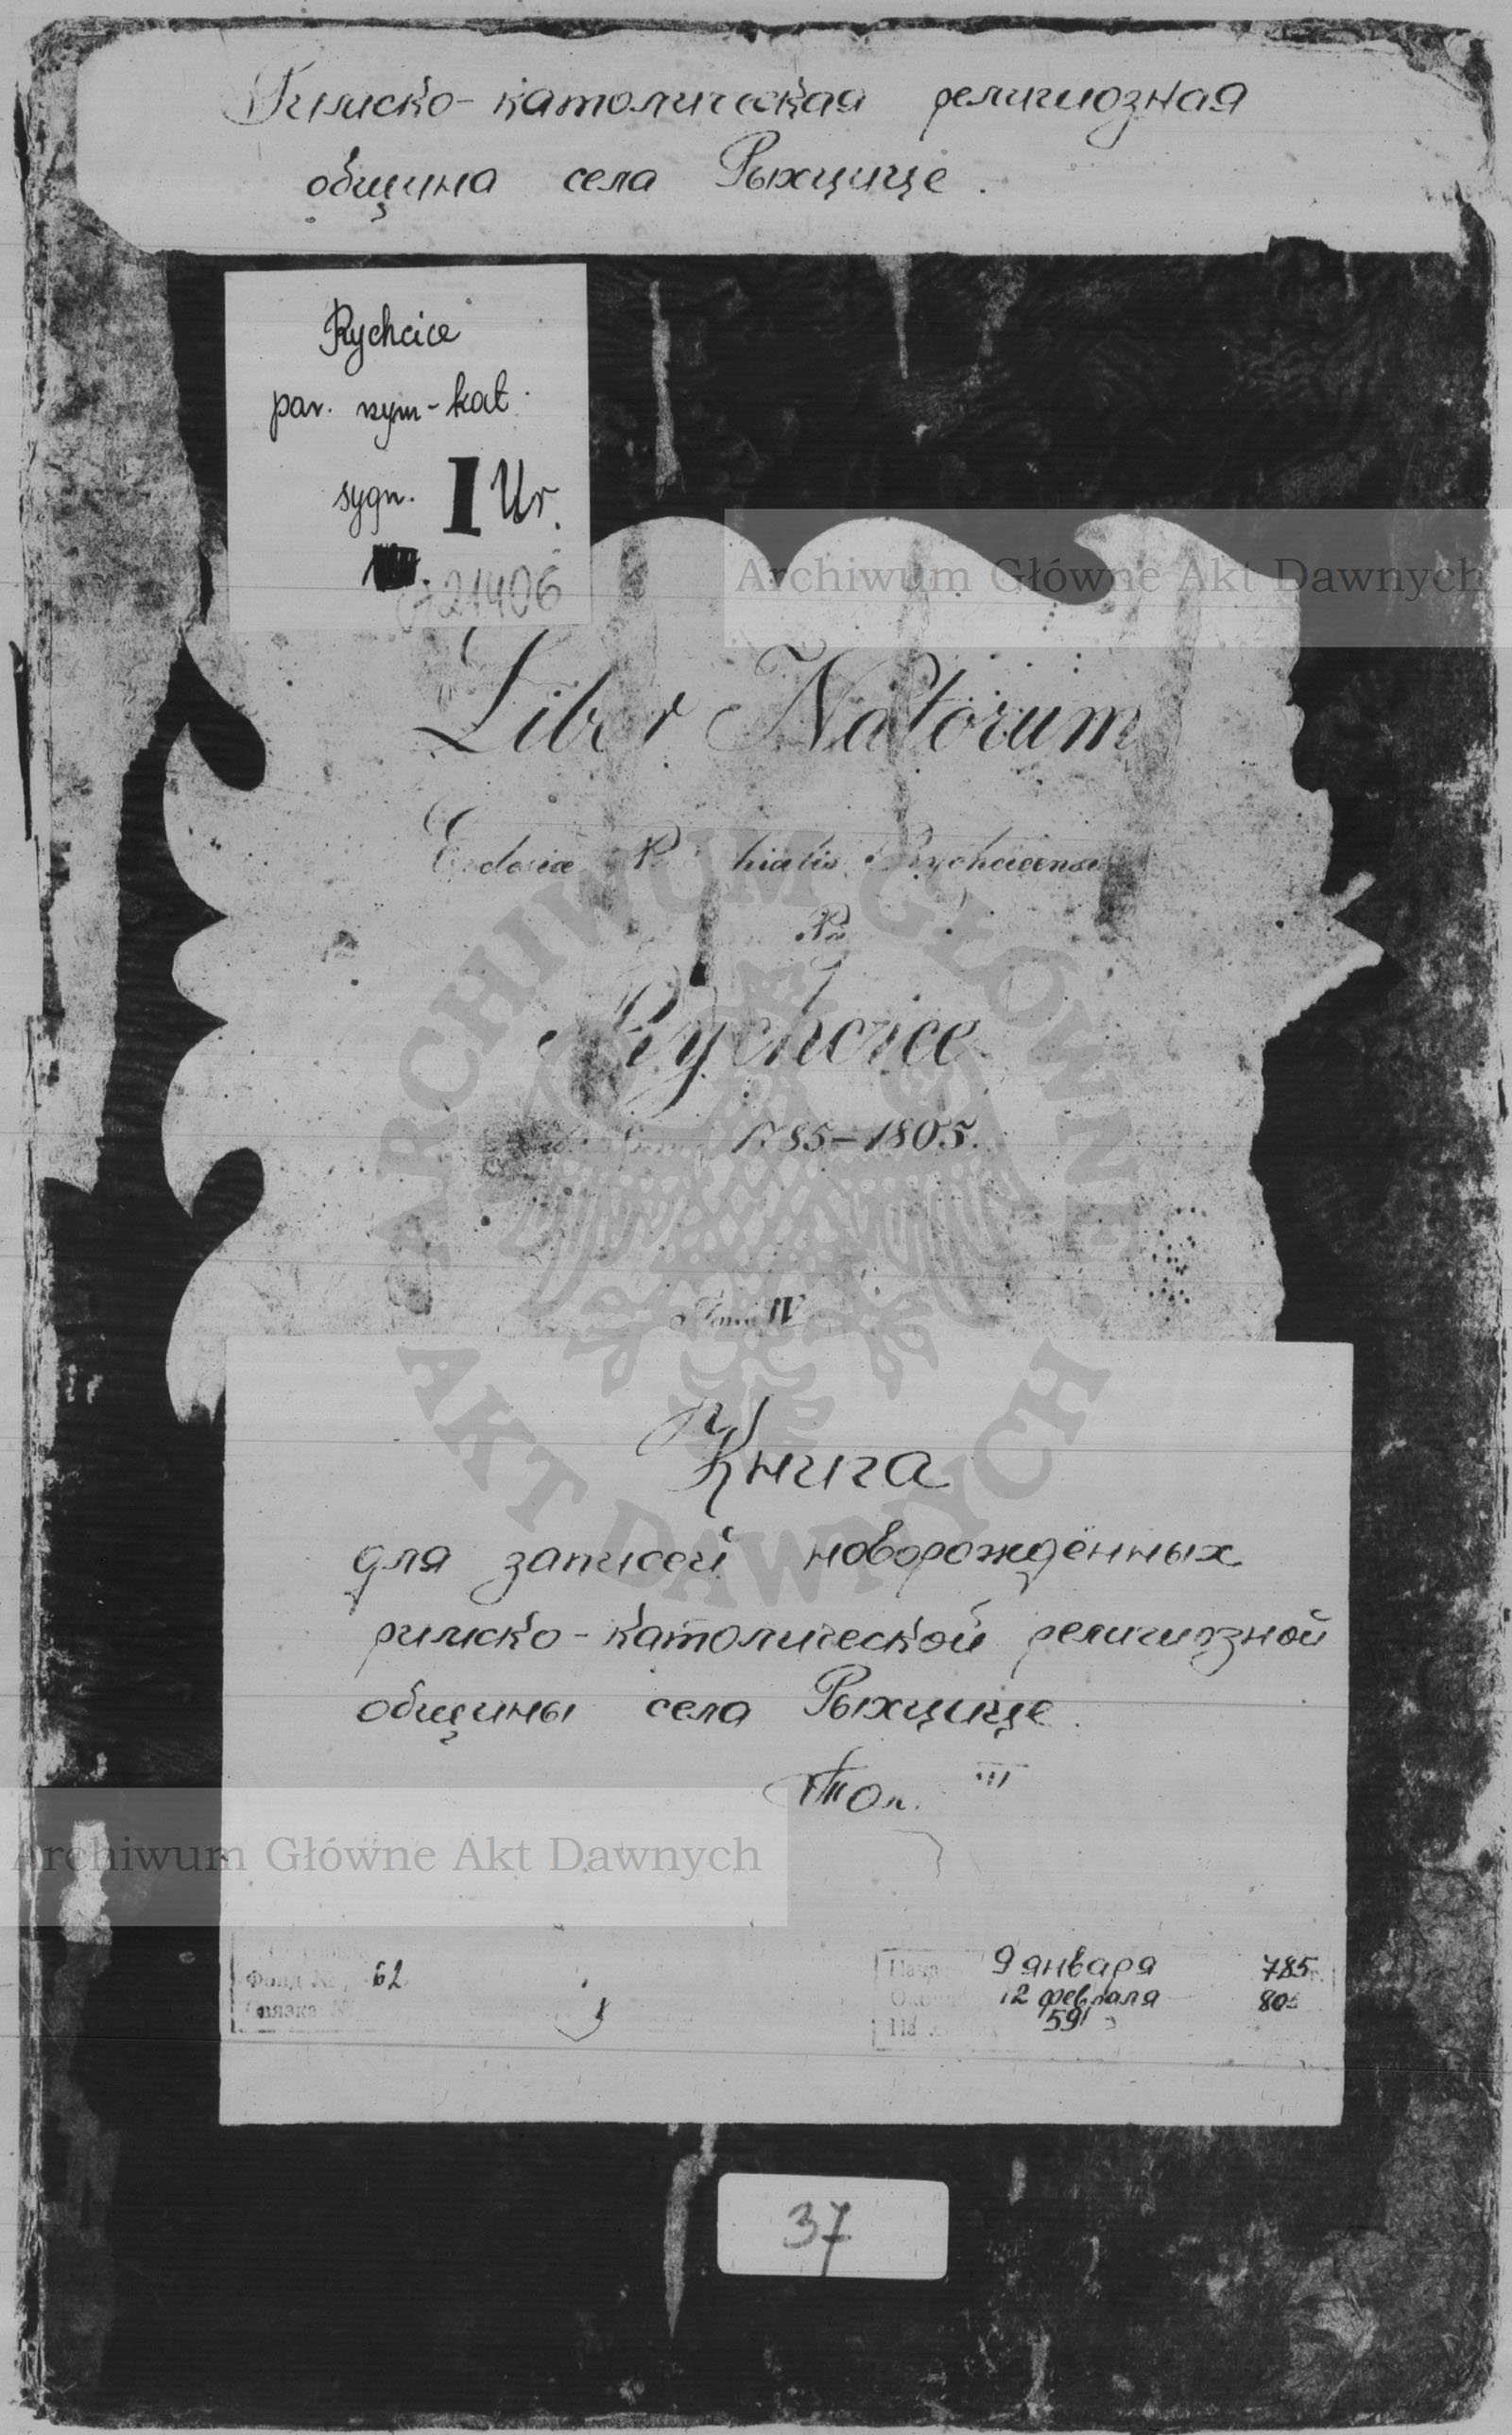 Римско-католическая религиозная
община села Рыхцице.
Rychcice
par. rzym-kat.
sygn. I Ur.
21406
Archiwum Główne Akt Dawnych
Liber Natorum
Rychcice
1785-1805.
IV
ARCHIWUM GŁÓWNE AKT DAWNYCH
Книга
для записей новорождённых
римско-католической религиозной
общины села Рыхцице.
Том. III
Archiwum Główne Akt Dawnych
Фонд № 62
9 января 785
12 февраля 805
59
37